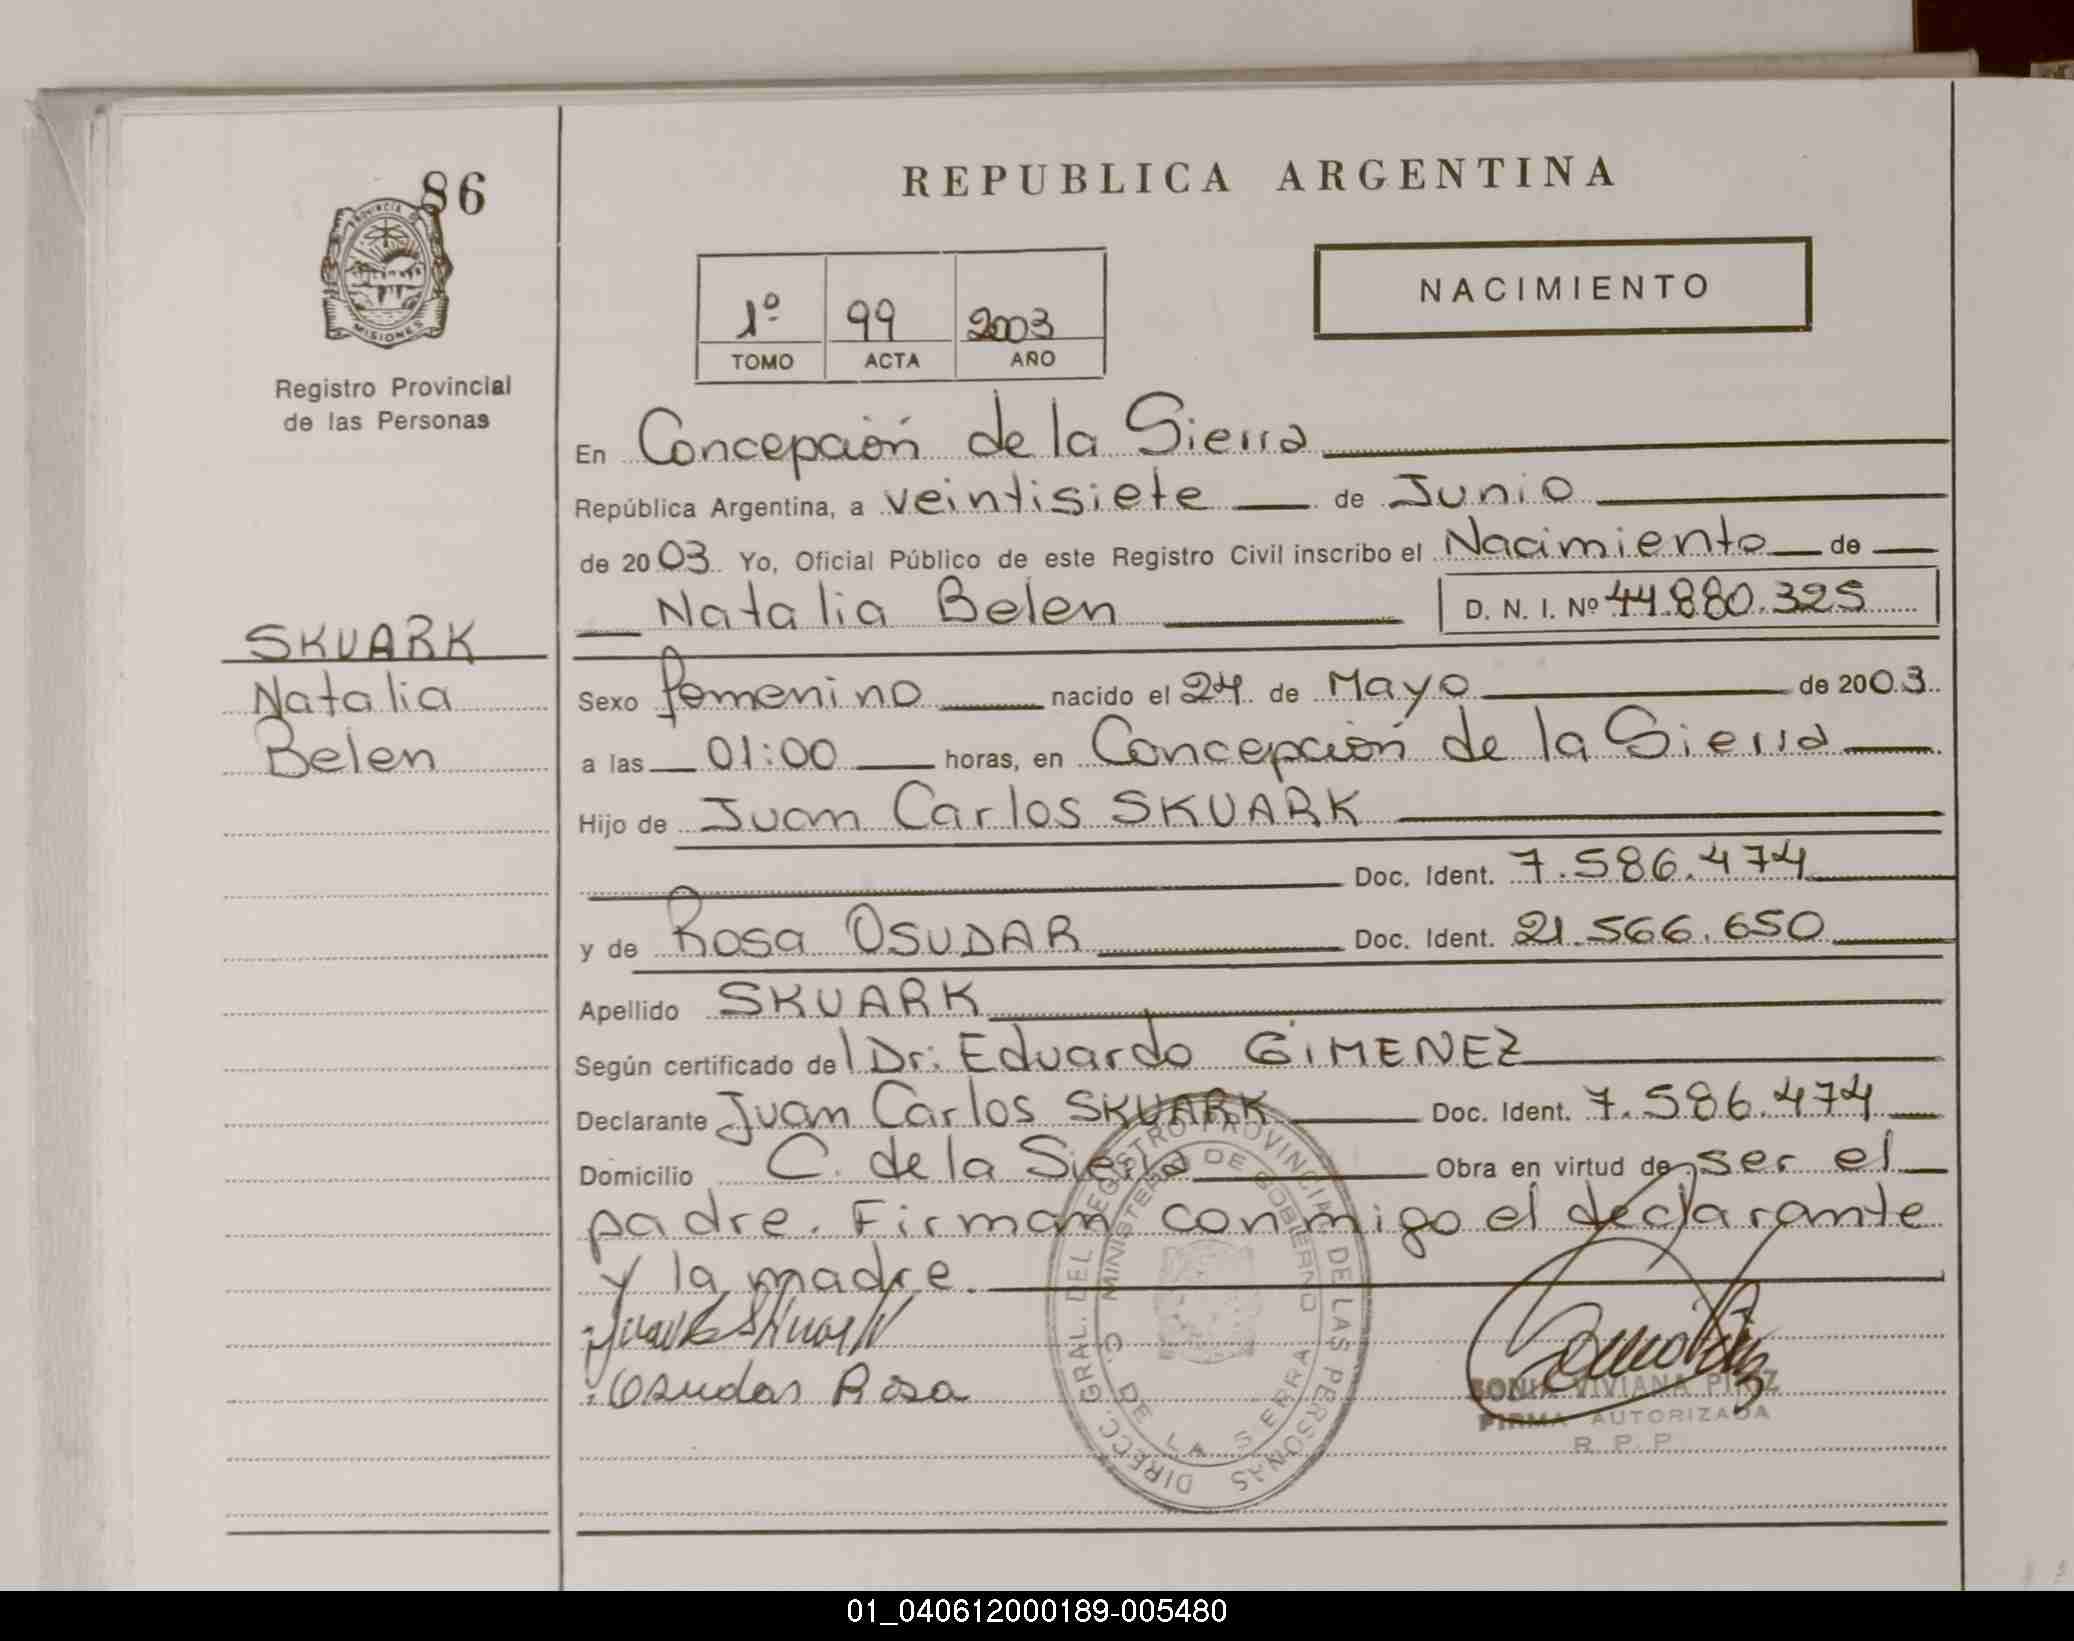 86
PROVINCIA DE
MISIONES
Registro Provincial
de las Personas
REPUBLICA ARGENTINA
1º 99 2003
TOMO ACTA AÑO
NACIMIENTO
En Concepción de la Sierra
República Argentina, a veintisiete de Junio
de 2003 Yo, Oficial Público de este Registro Civil inscribo el Nacimiento de
Natalia Belen D. N. I. Nº 44.880.325
SKUARK
Natalia
Belen
Sexo femenino nacido el 24 de Mayo de 2003
a las 01:00 horas, en Concepción de la Sierra
Hijo de Juan Carlos SKUARK
Doc. Ident. 7.586.474
y de Rosa OSUDAR Doc. Ident. 21.566.650
Apellido SKUARK
Según certificado del Dr: Eduardo GIMENEZ
Declarante Juan Carlos SKUARK Doc. Ident. 7.586.474
Domicilio C. de la Sierra Obra en virtud de ser el
padre. Firman conmigo el declarante
y la madre.
Juan C Skuark
Osudar Rosa
DIRECC. GRAL. DEL REGISTRO PROVINCIAL DE LAS PERSONAS
MINISTERIO DE GOBIERNO
C. DE LA SIERRA
SONIA VIVIANA PIRIZ
FIRMA AUTORIZADA
R. P. P.
01_040612000189-005480